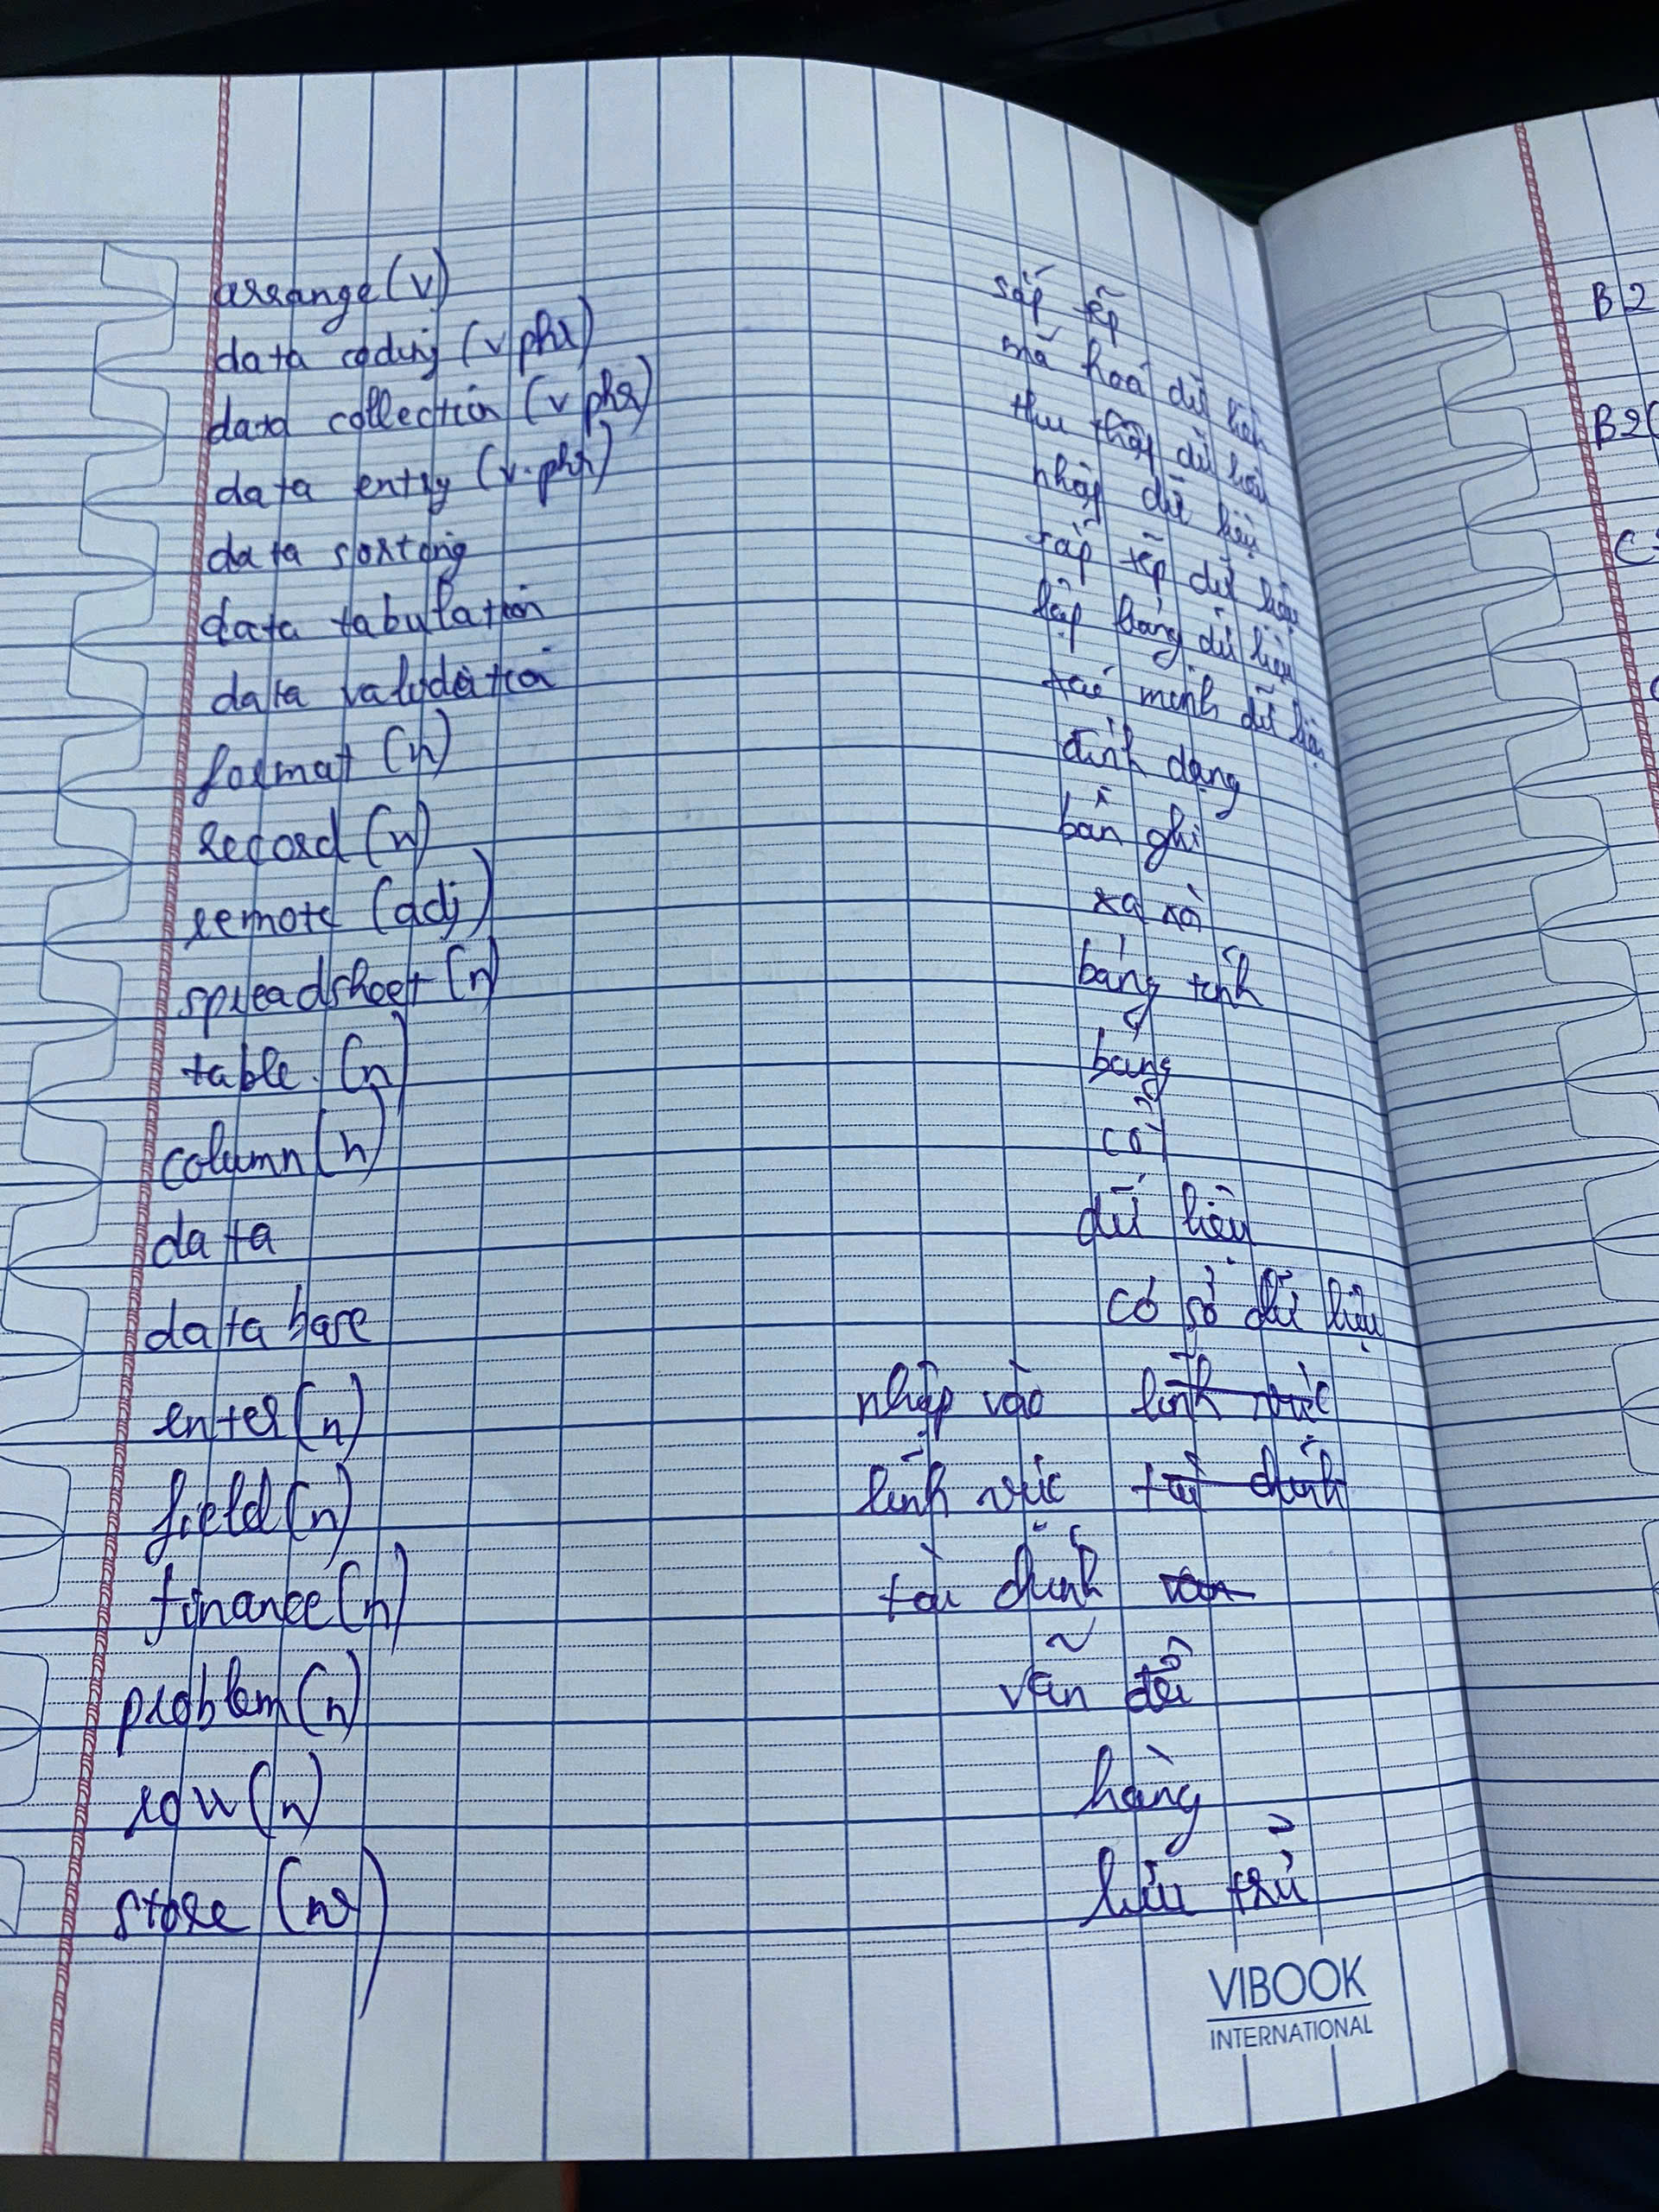 arrange (v) sắp xếp
data coding (v phr) mã hoá dữ liệu
data collection (v phr) thu thập dữ liệu
data entry (v.phr) nhập dữ liệu
data sorting sắp xếp dữ liệu
data tabulation lập bảng dữ liệu
data validation xác minh dữ liệu
format (n) định dạng
record (n) bản ghi
remote (adj) xa xôi
spreadsheet (n) bảng tính
table. (n) bảng
column (n) cột
data dữ liệu
data base cơ sở dữ liệu
enter (n) nhập vào lĩnh vực
field (n) lĩnh vực tài chính
finance (n) tài chính vấn
problem (n) vấn đề
row (n) hàng
store (n) lưu trữ
VIBOOK
INTERNATIONAL
B2
B2(